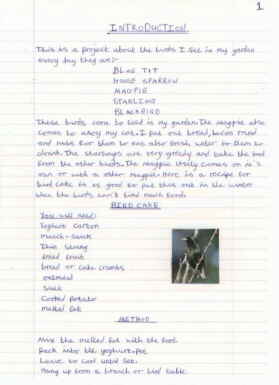 1
INTRODUCTION
This is a project about the birds I see in my garden
every day they are:-
BLUE TIT
HOUSE SPARROW
MAGPIE
STARLING
BLACKBIRD
These birds come to feed in my garden. The magpie also
comes to annoy my cat. I put out bread, bacon rind
and nuts for them to eat also fresh water for them to
drink. The starlings are very greedy and take the food
from the other birds. The magpie usually comes on it's
own or with a other magpie. Here is a recipe for
bird cake it is good to put this out in the winter
when the birds can't find much food.
BIRD CAKE
You will need:
Yoghurt carton
Match-stick
Thin string
bread crumbs or cake crumbs
oatmeal
Suet
Cooked potato
melted fat
METHOD
Mix the melted fat with the food.
Pack into the yoghurt pot
Leave to cool until set.
Hang up from a branch or bird table.